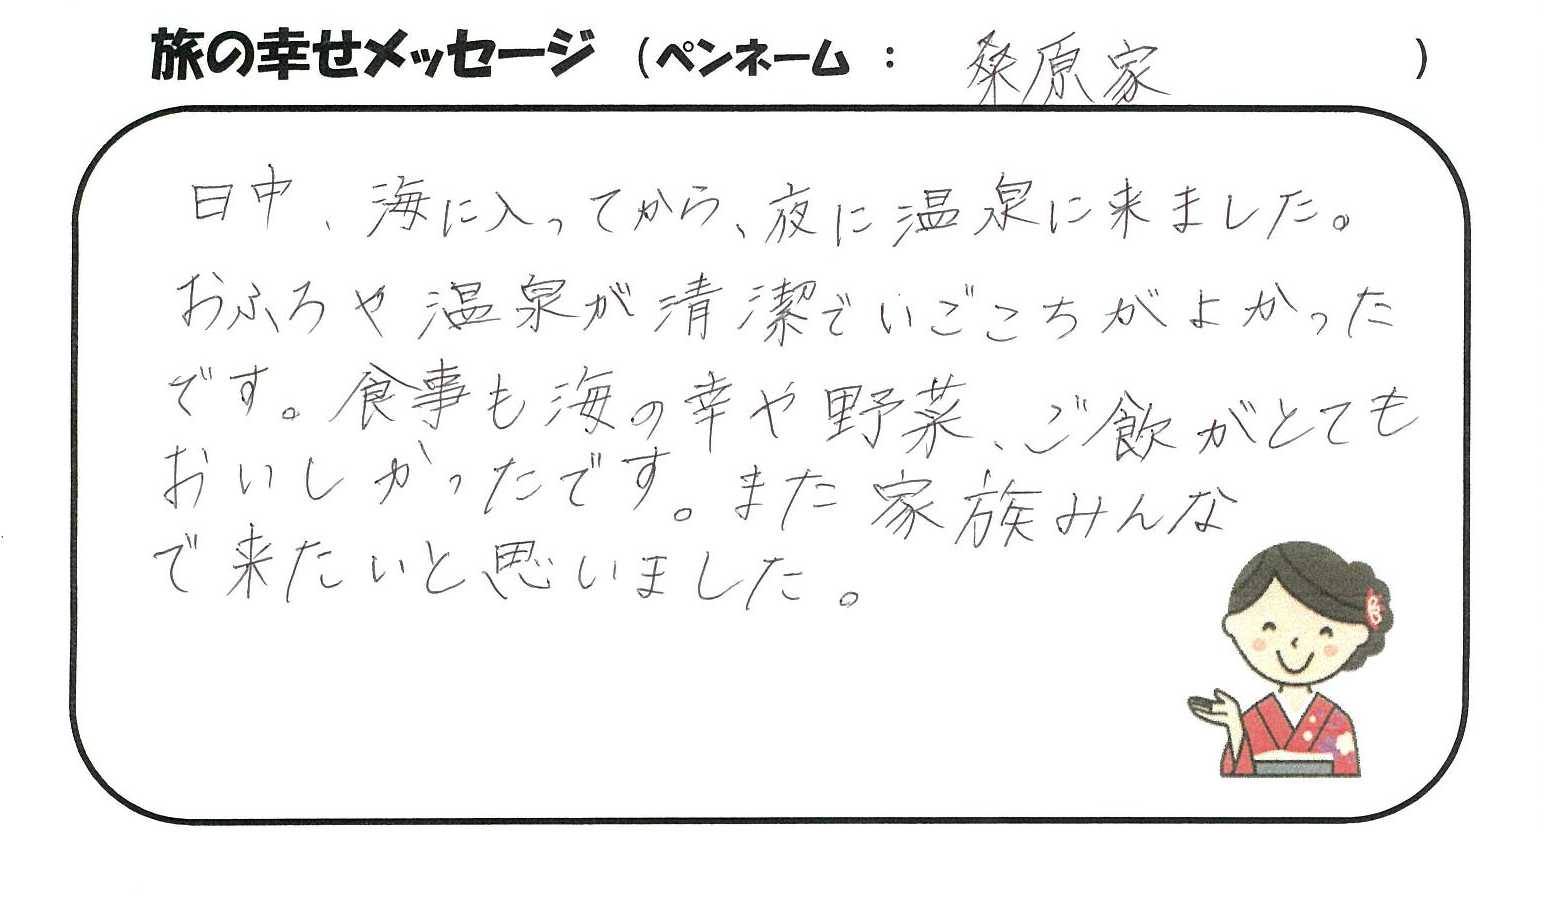 旅の幸せメッセージ (ペンネーム : 桑原家 )
日中、海に入ってから、夜に温泉に来ました。
おふろや温泉が清潔でいごこちがよかった
です。食事も海の幸や野菜、ご飲がとても
おいしかったです。また家族みんな
で来たいと思いました。